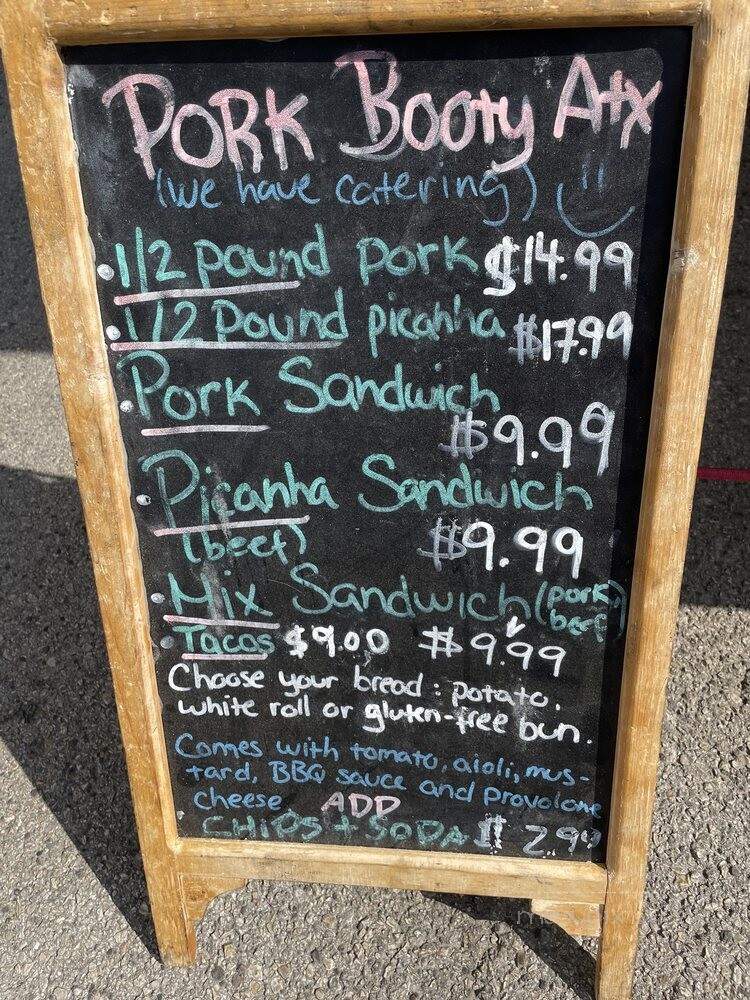 PORK Booty Atx
(we have catering)
1/2 pound pork $14.99
1/2 Pound picanha $17.99
Pork Sandwich
$9.99
Picanha Sandwich
(beef) $9.99
Mix Sandwich (pork
beef)
Tacos $9.00 $9.99
Choose your bread: potato.
white roll or gluten-free bun.
Comes with tomato, aioli, mus-
tard, BBQ sauce and provolone
cheese ADD
CHIPS + SODA $ 2.99